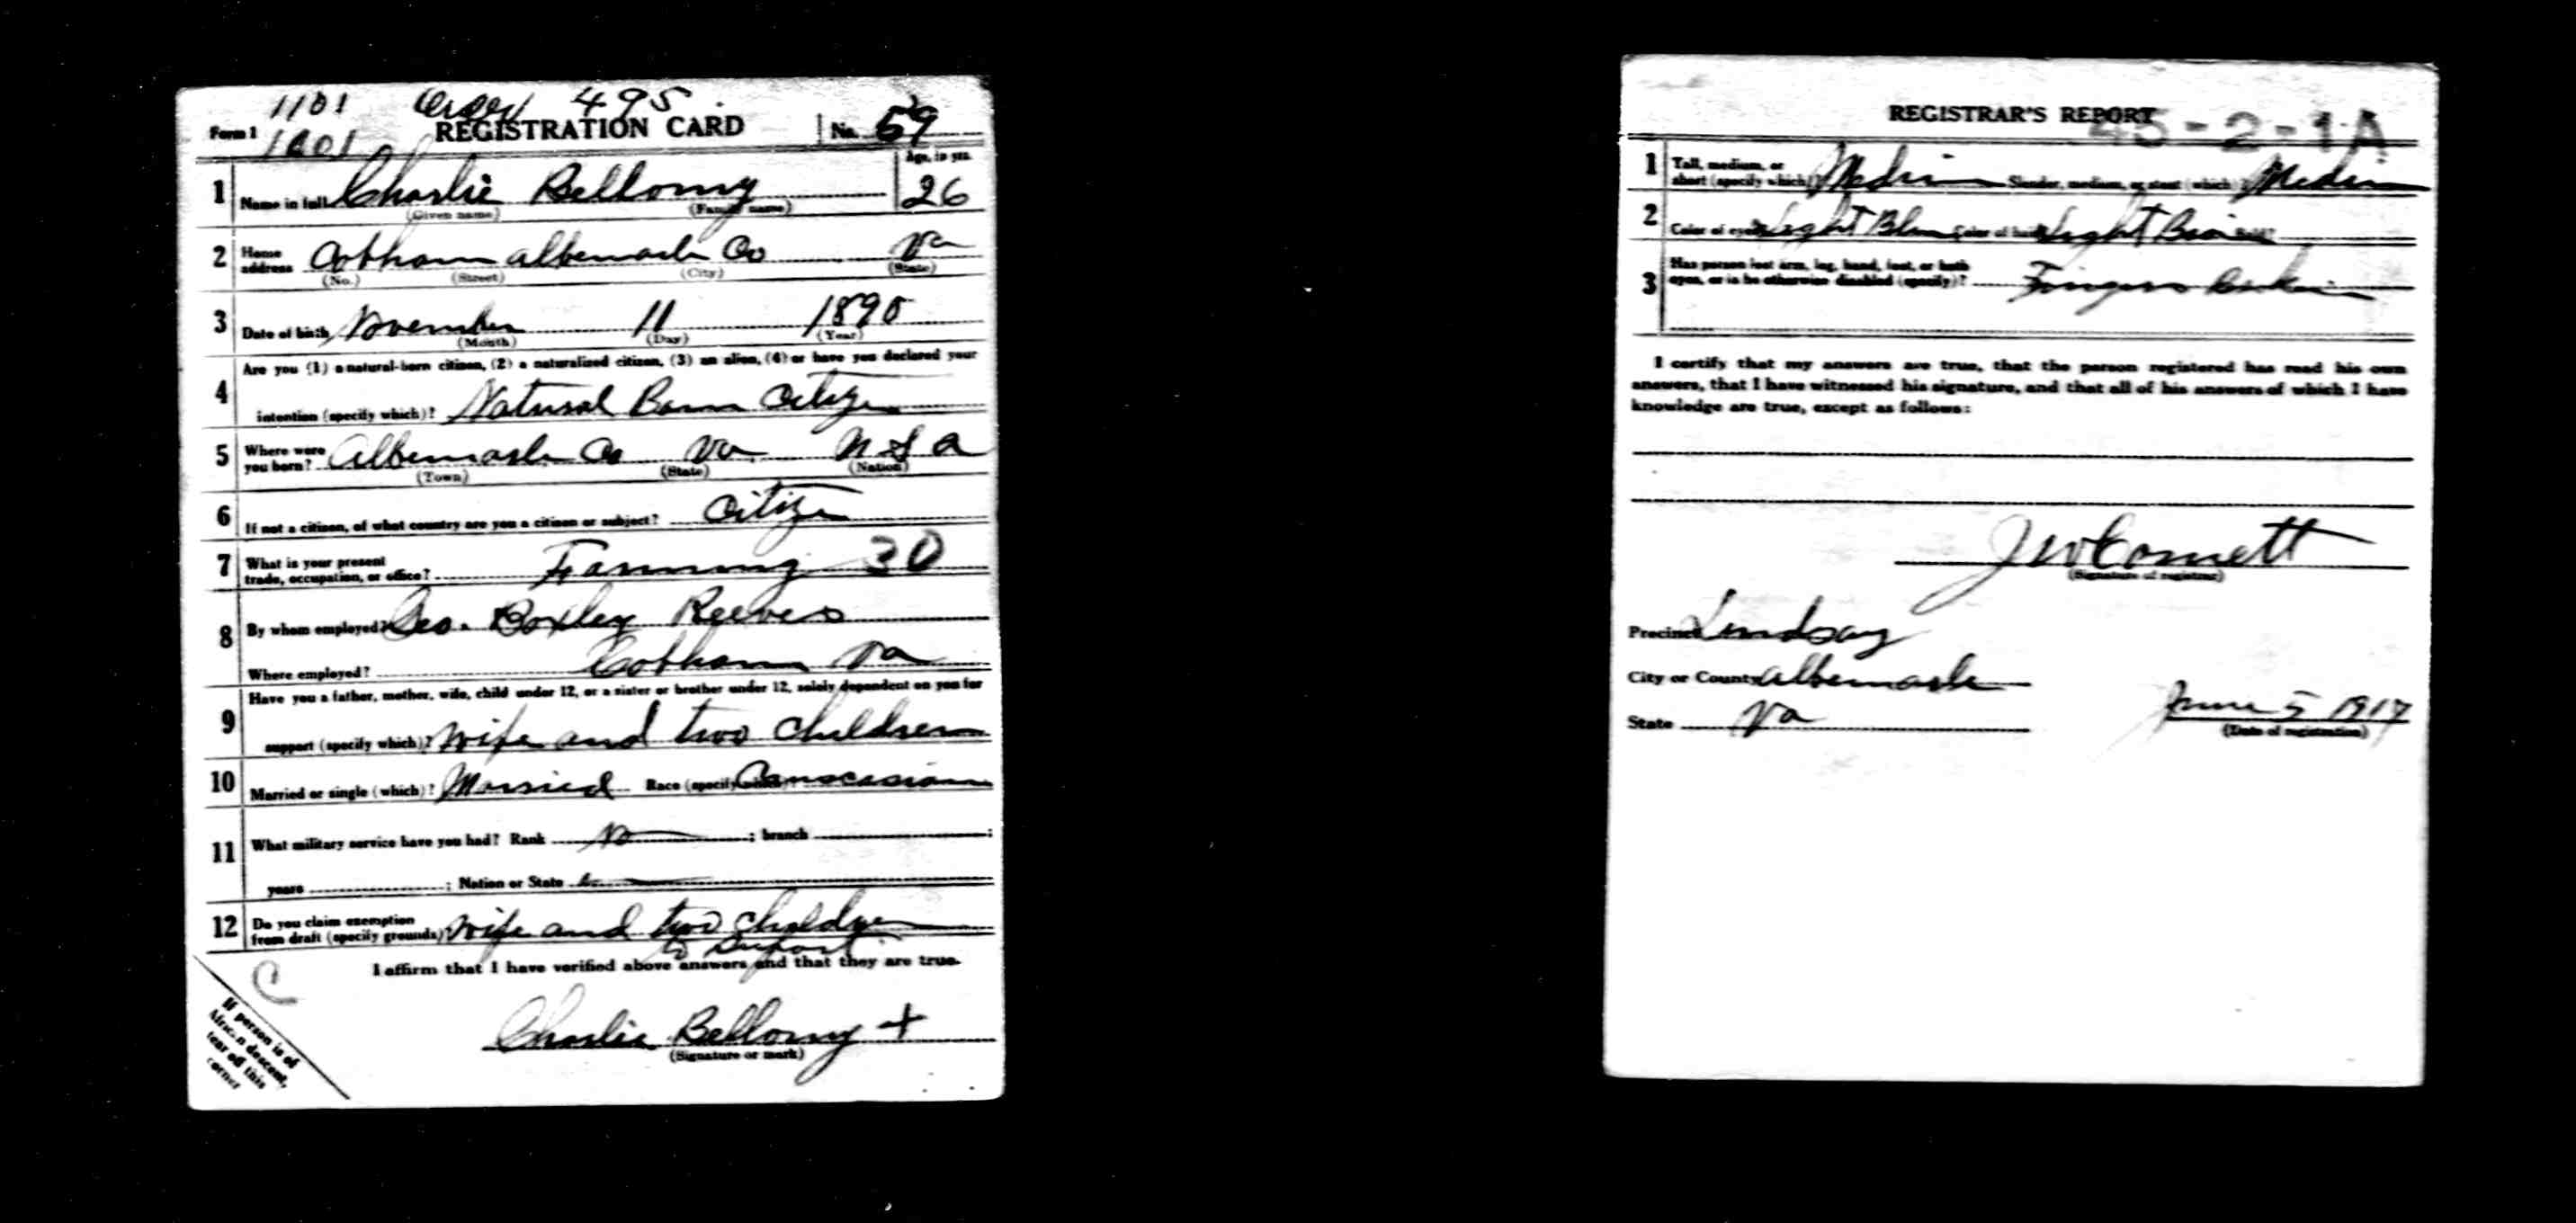 1101 Order 495
Form 1 1001 REGISTRATION CARD No. 59
Age, in yrs.
1 Name in full Charlie Bellomy 26
(Given name) (Family name)
2 Home address Cobham Albemarle Co Va
(No.) (Street) (City) (State)
3 Date of birth November 11 1890
(Month) (Day) (Year)
Are you (1) a natural-born citizen, (2) a naturalized citizen, (3) an alien, (4) or have you declared your
4 intention (specify which)? Natural Born Citizen
5 Where were you born? Albemarle Co Va U S A
(Town) (State) (Nation)
6 If not a citizen, of what country are you a citizen or subject? Citizen
7 What is your present trade, occupation, or office? Farming 30
8 By whom employed? Geo. Boxley Reeves
Where employed? Cobham Va
Have you a father, mother, wife, child under 12, or a sister or brother under 12, solely dependent on you for
9 support (specify which)? Wife and two children
10 Married or single (which)? Married Race (specify which)? Caucasian
11 What military service have you had? Rank No ; branch ;
years ; Nation or State
12 Do you claim exemption from draft (specify grounds)? Wife and two children
to suport
C I affirm that I have verified above answers and that they are true.
Charlie Bellomy +
(Signature or mark)
If person is of
African descent,
tear off this
corner
REGISTRAR'S REPORT
45-2-1A
1 Tall, medium, or short (specify which)? Medium Slender, medium, or stout (which)? Medium
2 Color of eyes? Light Blue Color of hair? Light Brown Bald?
3 Has person lost arm, leg, hand, foot, or both eyes, or is he otherwise disabled (specify)? Fingers
I certify that my answers are true, that the person registered has read his own
answers, that I have witnessed his signature, and that all of his answers of which I have
knowledge are true, except as follows:
J W Cornett
(Signature of registrar)
Precinct Lindsay
City or County Albemarle
State Va June 5 1917
(Date of registration)